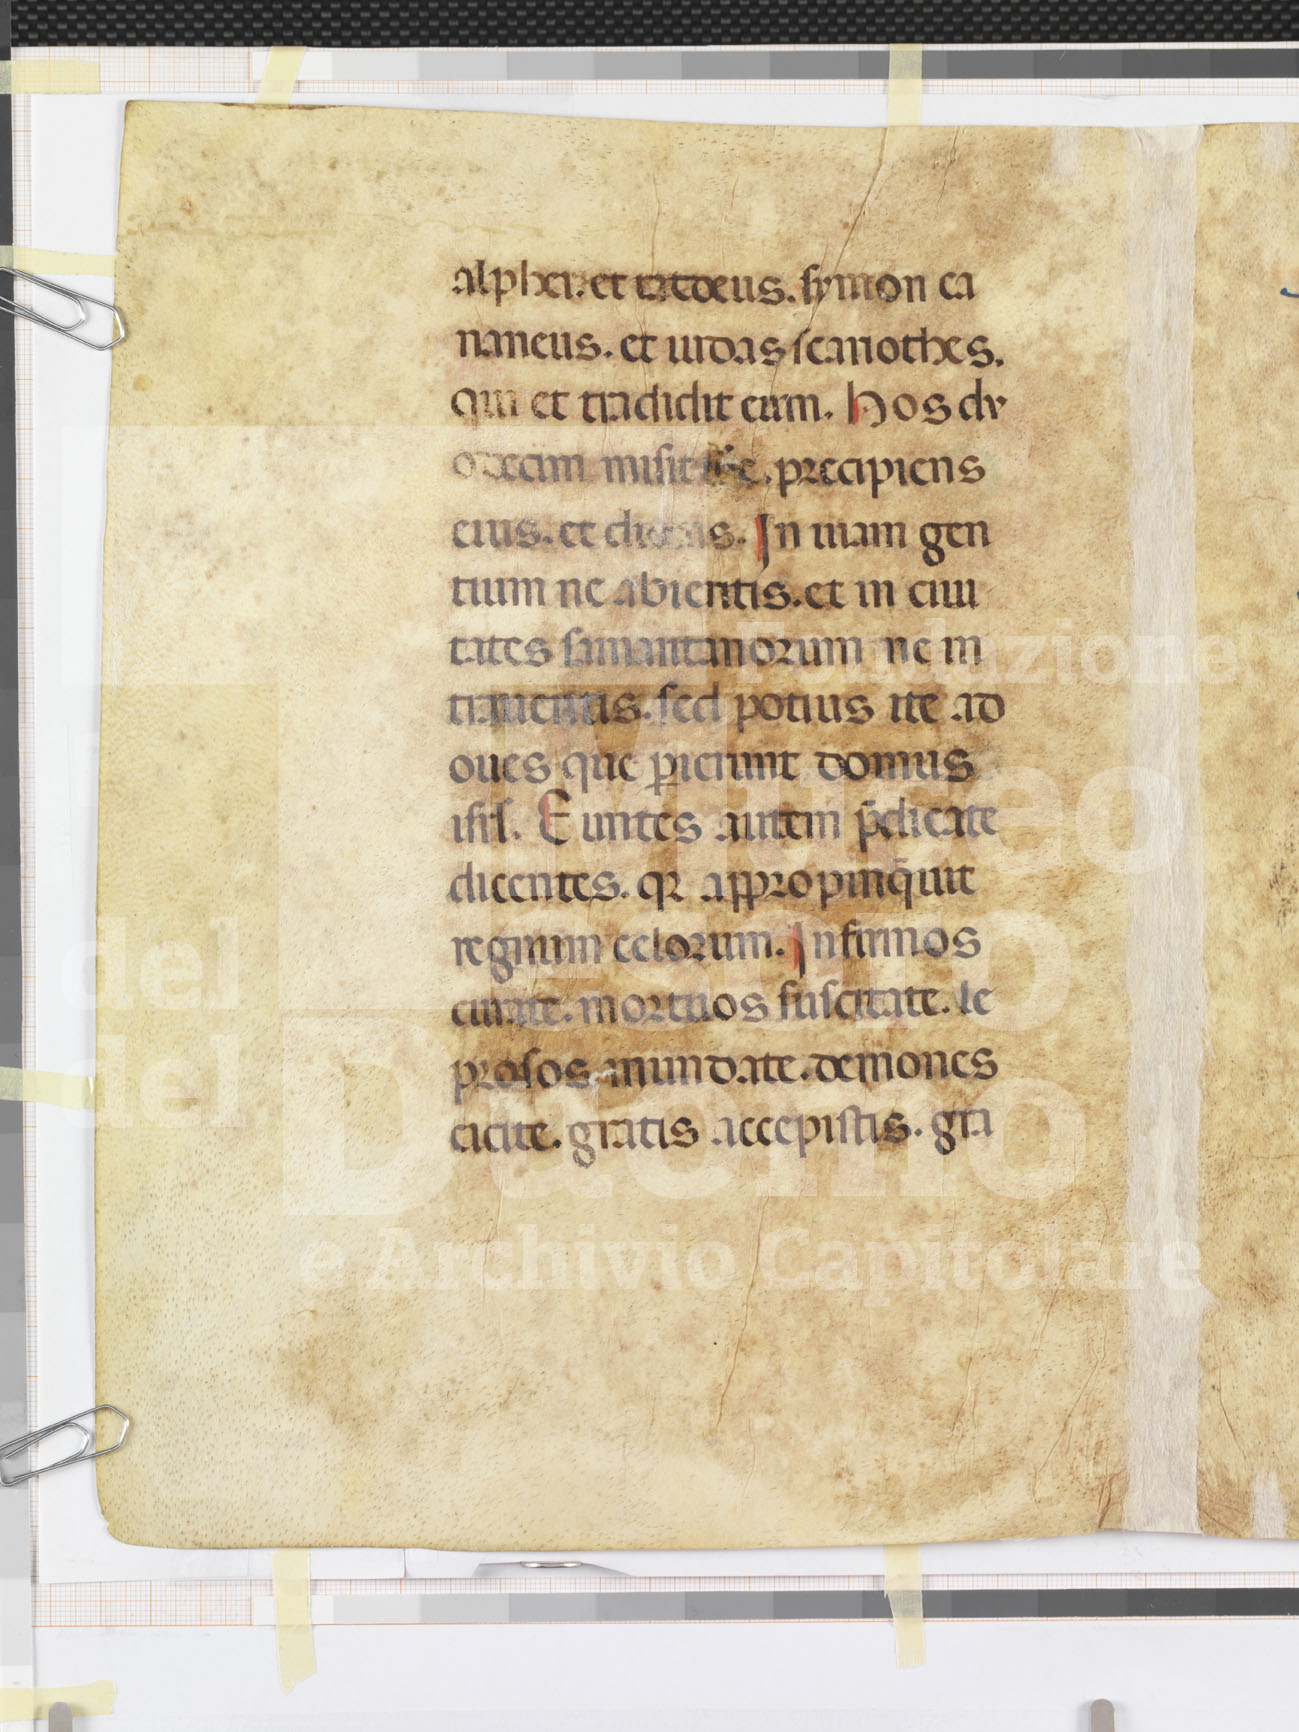 alphei. et tatdeus. symon ca
naneus. et iudas scariothes.
qui et tradidit eum. Hos du
odecim misit ihc. precipiens
eius. et dicens. In uiam gen
tium ne abieritis. et in ciui
tates samaritanorum ne in
traueritis. sed potius ite ad
oues que perierunt domus
isrl. Euntes autem p̄dicate
dicentes. qr appropinq̄uit
regnum celorum. Infirmos
curate. mortuos suscitate. le
prosos mundate. demones
eicite. gratis accepistis. gra
Fondazione
Museo
del Duomo
del Duomo
e Archivio Capitolare